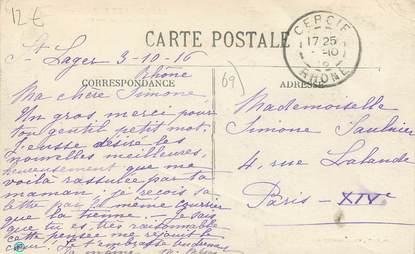 12€
CARTE POSTALE
CERCIE
17 25
10
RHÔNE
St Lager 3-10-16
Rhône
CORRESPONDANCE
69
ADRESSE
Ma chère Simone
Un gros merci pour
ton gentil petit mot.
J'eusse désiré tes
nouvelles meilleures,
heureusement que me
voilà rassurée par ta
maman - je reçois sa
lettre par le même courrier
que la tienne. - Je sais
que tu es très raisonnable
cette pensée me réjouit le
cœur! Je t'embrasse tendrement
Mademoiselle
Simone Saulnier
4, rue Lalande
Paris - XIVe